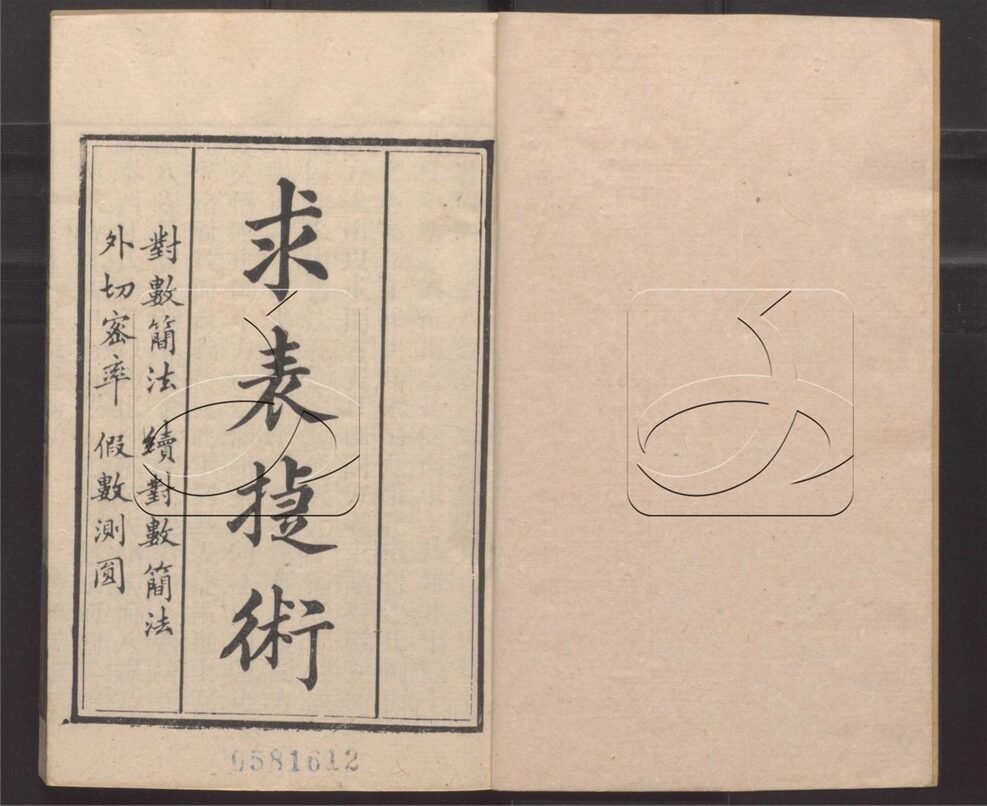 求表捷術
對數簡法 續對數簡法
外切密率 假數測圓
0581612